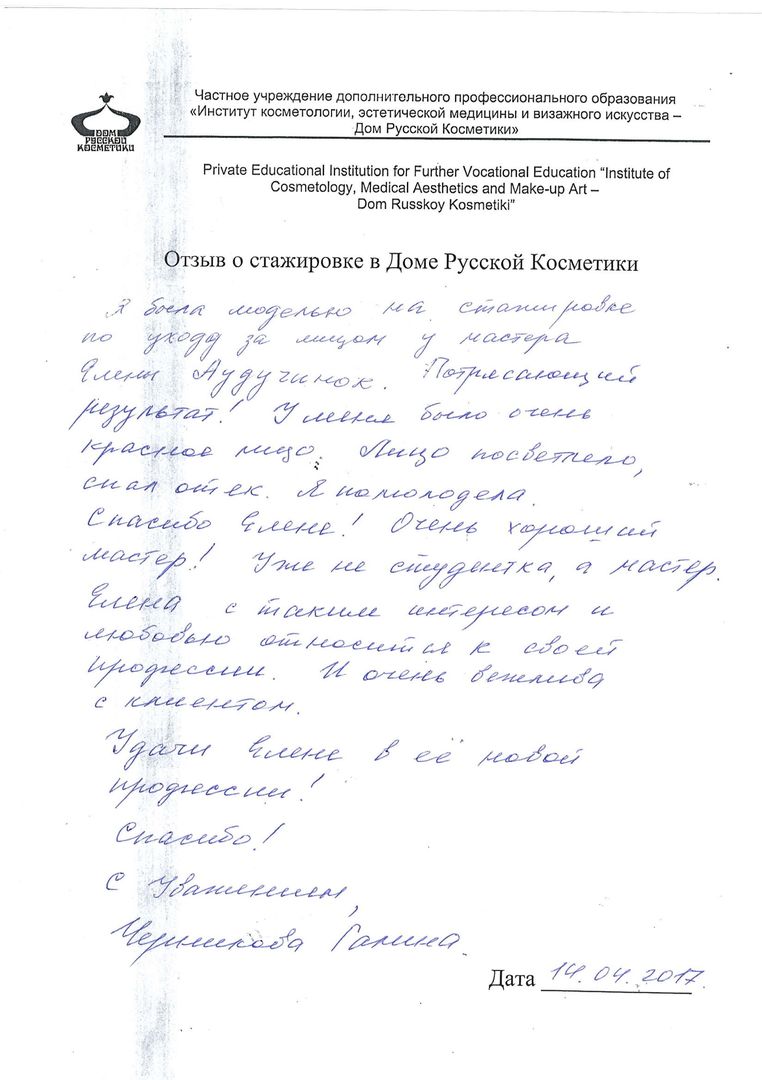 ДОМ
РУССКОЙ
КОСМЕТИКИ
Частное учреждение дополнительного профессионального образования
«Институт косметологии, эстетической медицины и визажного искусства –
Дом Русской Косметики»
Private Educational Institution for Further Vocational Education “Institute of
Cosmetology, Medical Aesthetics and Make-up Art –
Dom Russkoy Kosmetiki”
Отзыв о стажировке в Доме Русской Косметики
Я была моделью на стажировке
по уходу за лицом у мастера
Елены Аудучинок. Потрясающий
результат! У меня было очень
красное лицо. Лицо посветлело,
спал отек. Я помолодела.
Спасибо Елене! Очень хороший
мастер! Уже не студентка, а мастер.
Елена с таким интересом и
любовью относится к своей
профессии. И очень вежлива
с клиентом.
Удачи Елене в её новой
профессии!
Спасибо!
С Уважением,
Черникова Галина.
Дата 14.04.2017.